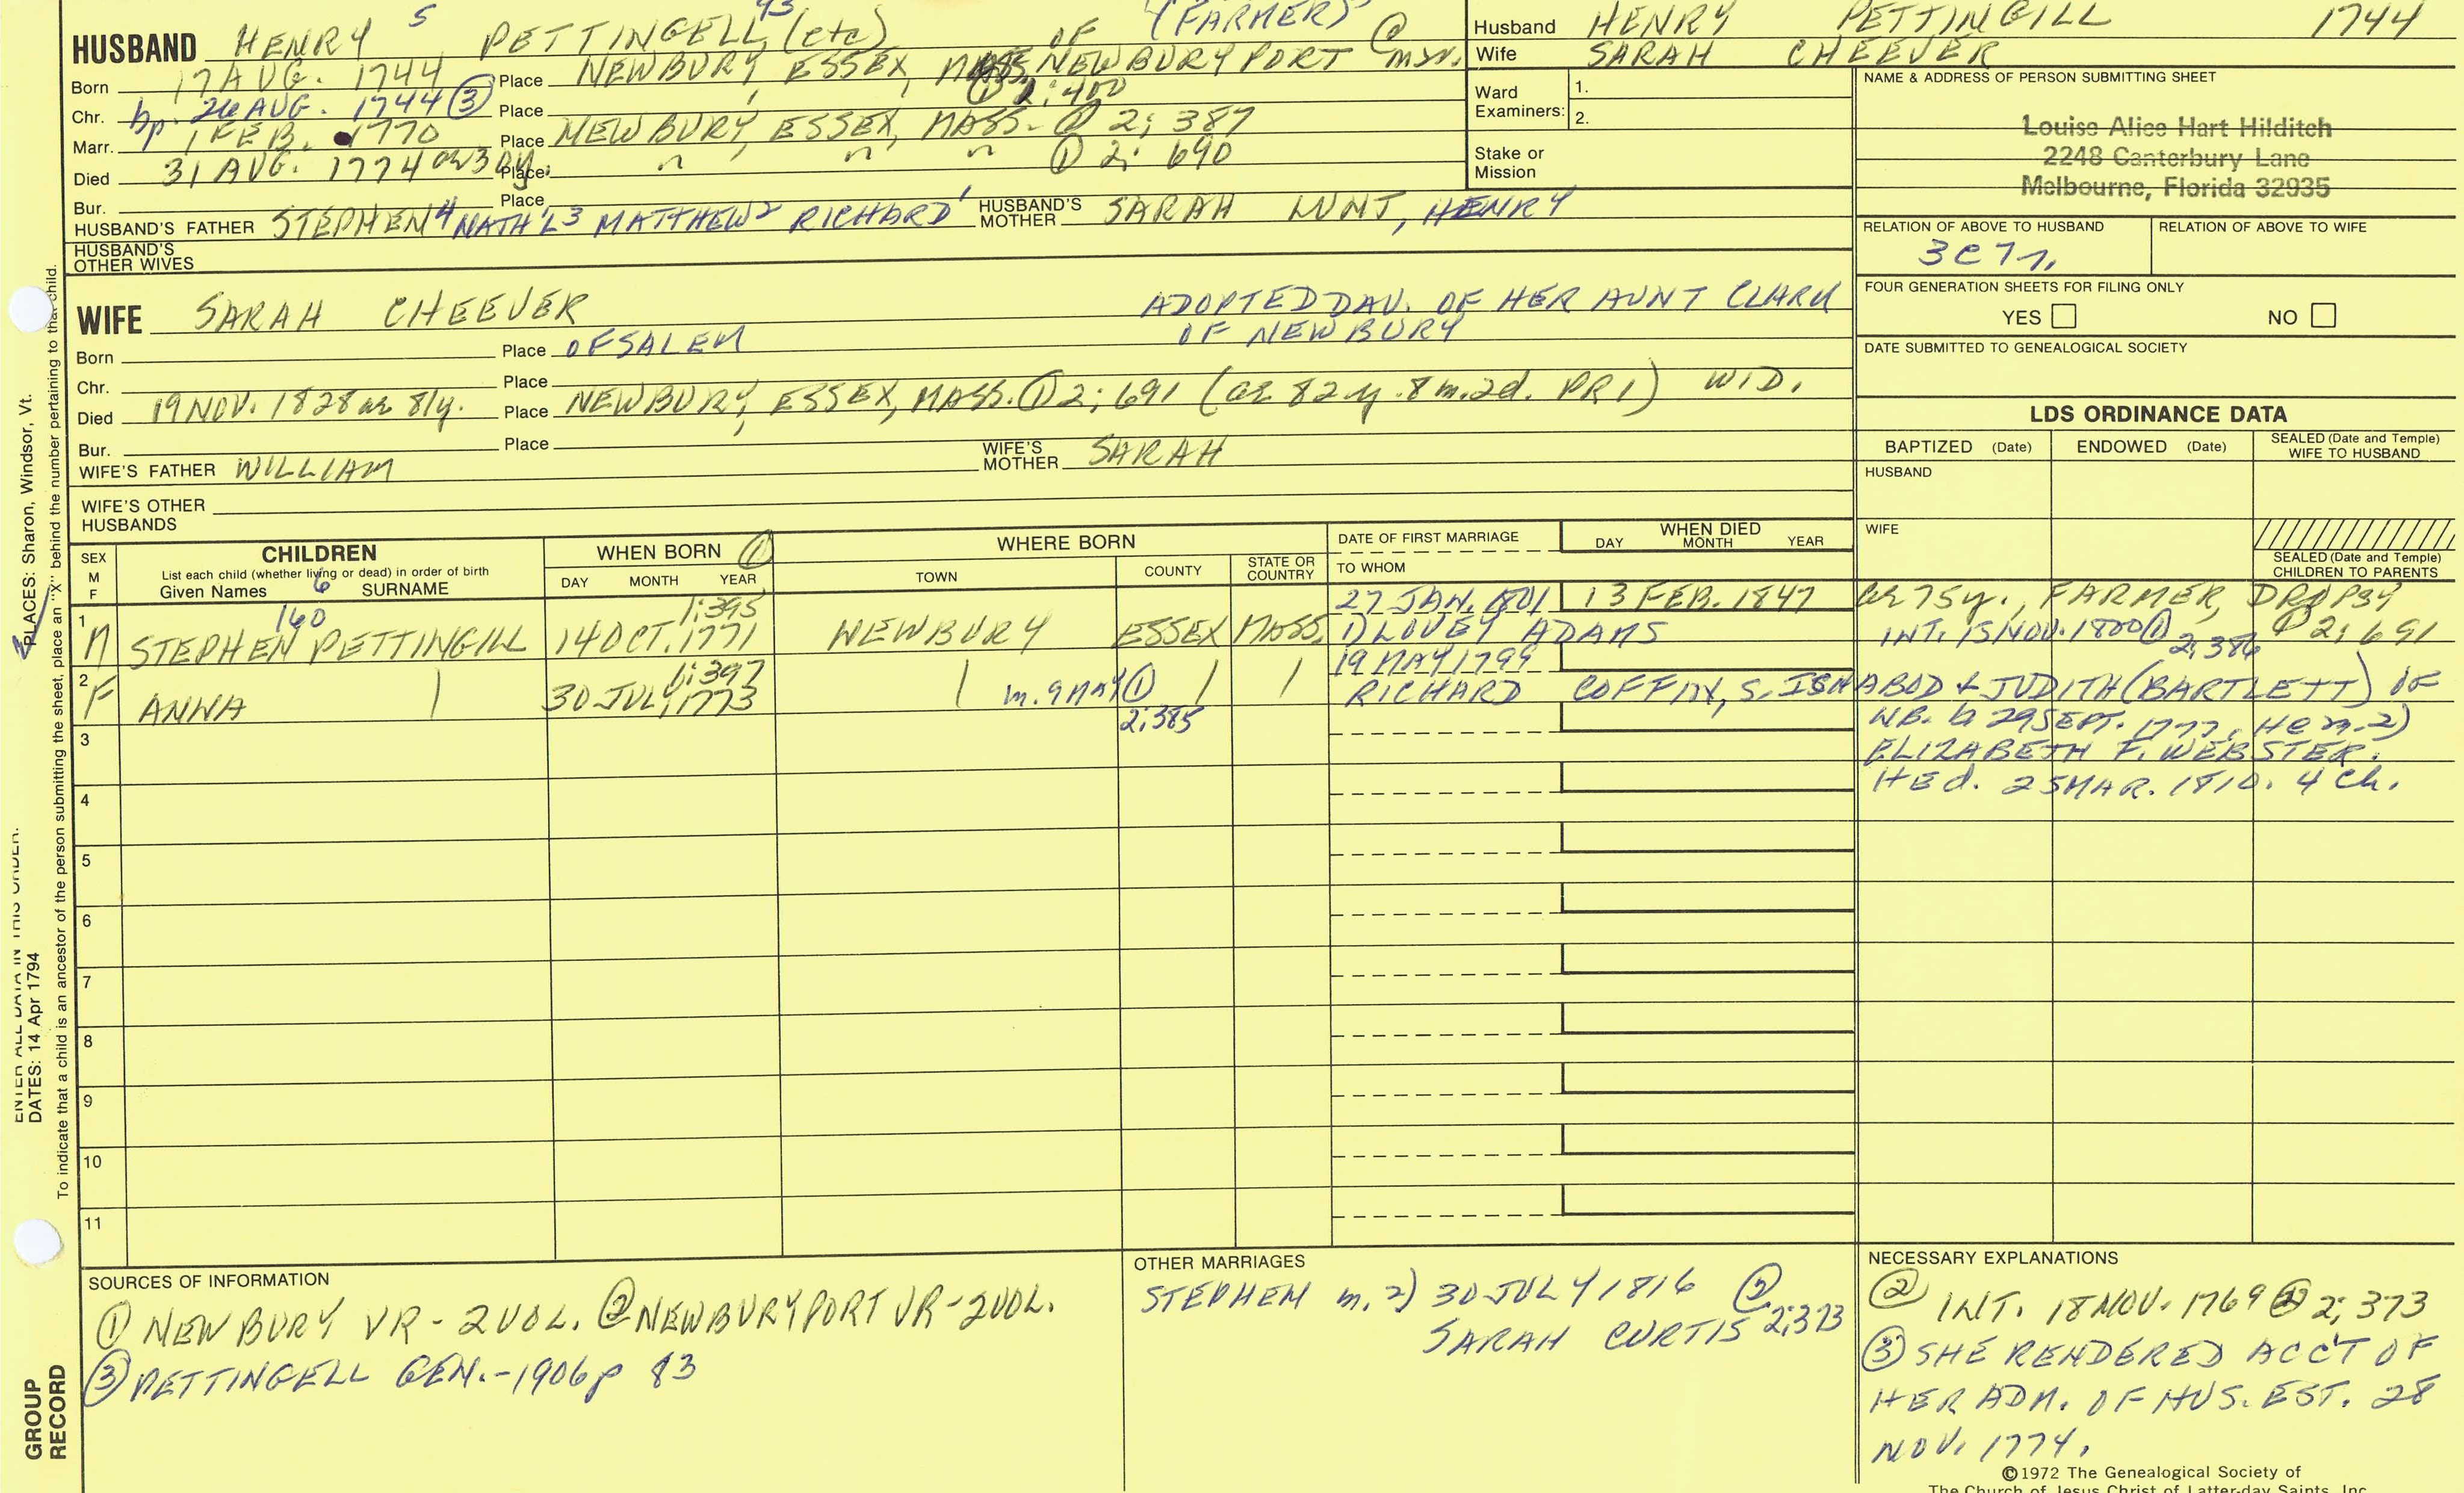 HUSBAND HENRY 5 PETTINGELL 43 (etc) OF (FARMER)
Born 17 AUG. 1744 Place NEWBURY, ESSEX, MASS. NEWBURYPORT
① 2:400
Chr. bp. 26 AUG. 1744 ③ Place
Marr. 1 FEB. 1770 Place NEWBURY, ESSEX, MASS. 2; 387
Died 31 AUG. 1774 ae 30y. Place " " " ① 2: 690
Bur. Place
HUSBAND'S FATHER STEPHEN4 NATH'L3 MATTHEW2 RICHARD1 HUSBAND'S MOTHER SARAH LUNT, HENRY
HUSBAND'S OTHER WIVES
WIFE SARAH CHEEVER ADOPTED DAU. OF HER AUNT CLARK
OF NEWBURY
Born Place OF SALEM
Chr. Place
Died 19 NOV. 1828 ae 81y. Place NEWBURY, ESSEX, MASS. ① 2; 691 (ae 82y. 8m. 2d. PR1) WID.
Bur. Place
WIFE'S FATHER WILLIAM WIFE'S MOTHER SARAH
WIFE'S OTHER HUSBANDS
Husband HENRY PETTINGILL 1744
Wife SARAH CHEEVER
Ward Examiners: 1.
2.
Stake or Mission
NAME & ADDRESS OF PERSON SUBMITTING SHEET
Louise Alice Hart Hilditch
2248 Canterbury Lane
Melbourne, Florida 32935
RELATION OF ABOVE TO HUSBAND RELATION OF ABOVE TO WIFE
3C7r.
FOUR GENERATION SHEETS FOR FILING ONLY
YES NO
DATE SUBMITTED TO GENEALOGICAL SOCIETY
LDS ORDINANCE DATA
BAPTIZED (Date) ENDOWED (Date) SEALED (Date and Temple) WIFE TO HUSBAND
HUSBAND
WIFE
SEALED (Date and Temple) CHILDREN TO PARENTS
SEX M F
CHILDREN
List each child (whether living or dead) in order of birth
Given Names 6 SURNAME
WHEN BORN ①
DAY MONTH YEAR
WHERE BORN
TOWN COUNTY STATE OR COUNTRY
DATE OF FIRST MARRIAGE
TO WHOM
WHEN DIED
DAY MONTH YEAR
160 1:395 27 JAN. 1801 13 FEB. 1847 ae 75y., FARMER, DROPSY
1 M STEPHEN PETTINGILL 14 OCT. 1771 NEWBURY ESSEX MASS. 1) LOVEY ADAMS INT. 15 NOV. 1800 ① 2; 386 ① 2; 691
1:397 19 MAY 1799
2 F ANNA 30 JULY 1773 m. 9 MAY ① 2:385 RICHARD COFFIN, S. ISHABOD & JUDITH (BARTLETT) OF
NB. b 29 SEPT. 1777. He m. 2)
ELIZABETH F. WEBSTER.
HE d. 25 MAR. 1810. 4 Ch.
3
4
5
6
7
8
9
10
11
SOURCES OF INFORMATION
① NEWBURY VR - 2 VOL. ② NEWBURYPORT VR - 2 VOL.
③ PETTINGELL GEN. - 1906 p 83
OTHER MARRIAGES
STEPHEN m. 2) 30 JULY 1816 ②
SARAH CURTIS 2:373
NECESSARY EXPLANATIONS
② INT. 18 NOV. 1769 ② 2; 373
③ SHE RENDERED ACC'T OF
HER ADM. OF HUS. EST. 28
NOV. 1774.
©1972 The Genealogical Society of
The Church of Jesus Christ of Latter-day Saints, Inc.
ENTER ALL DATA IN THIS ORDER:
DATES: 14 Apr 1794
PLACES: Sharon, Windsor, Vt.
To indicate that a child is an ancestor of the person submitting the sheet, place an "X" behind the number pertaining to that child.
GROUP
RECORD